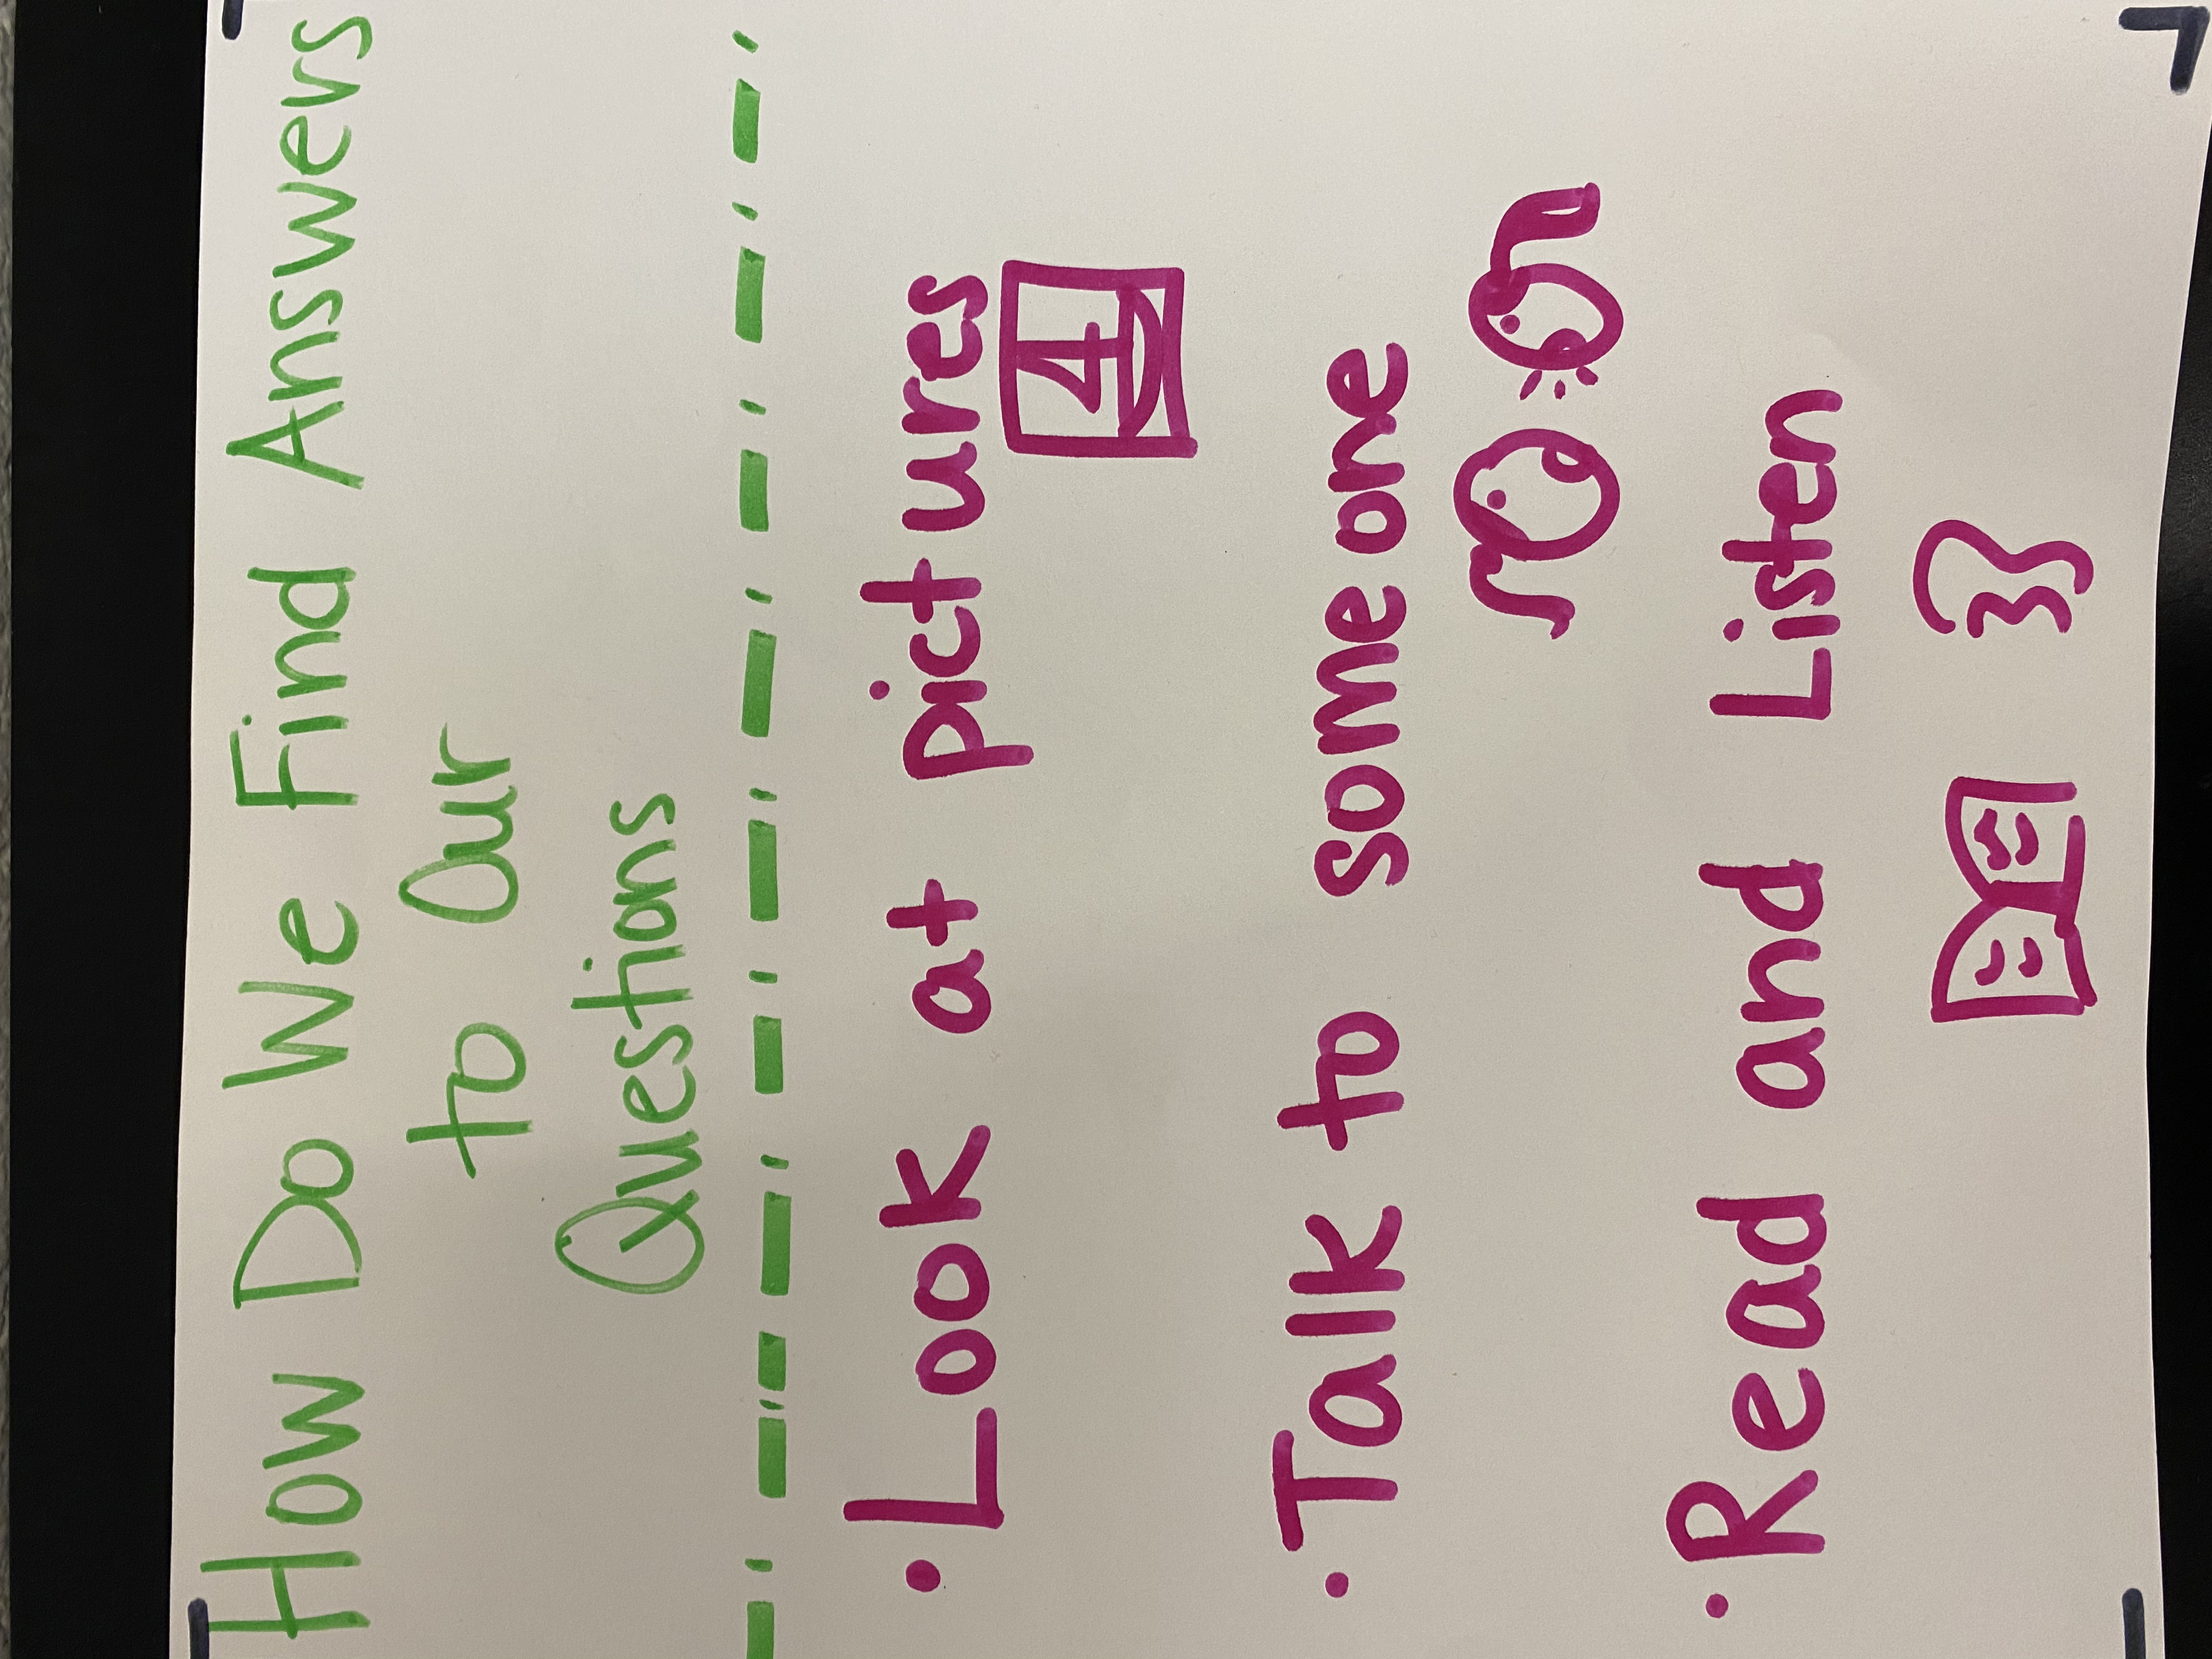 How Do We Find Answers
to Our
Questions
• Look at pictures
• Talk to someone
• Read and Listen